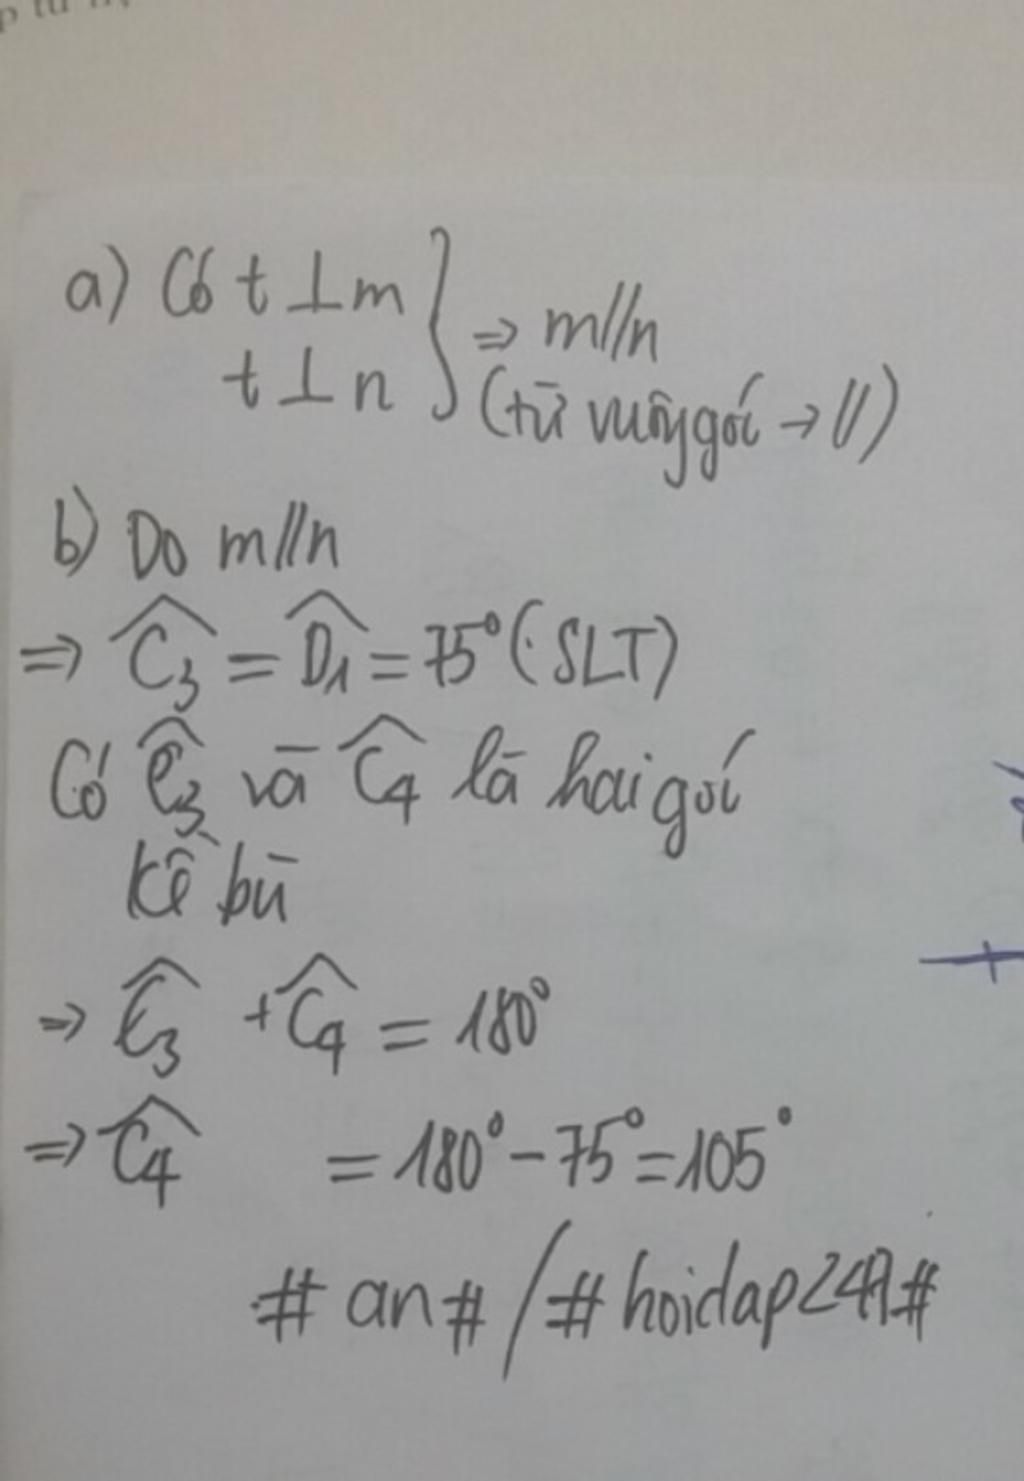 a) Có t ⊥ m
t ⊥ n } ⇒ m//n
(từ vuông góc → //)
b) Do m//n
⇒ Ĉ3 = D̂1 = 75° (SLT)
Có Ĉ3 và Ĉ4 là hai góc
kề bù
⇒ Ĉ3 + Ĉ4 = 180°
⇒ Ĉ4 = 180° - 75° = 105°
#an# / #hoidap247#